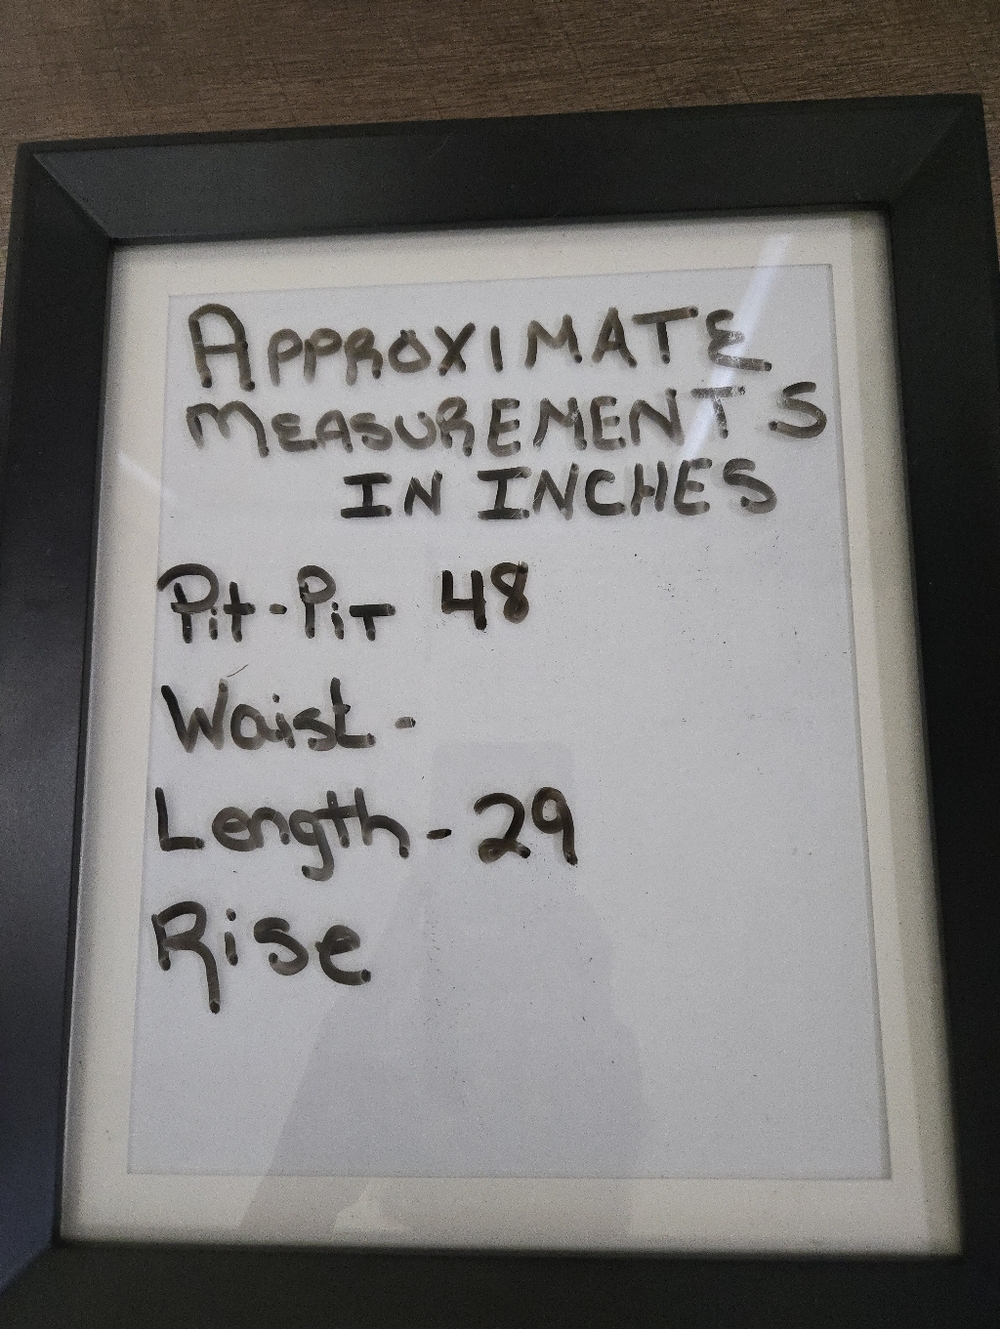 APPROXIMATE
MEASUREMENTS
IN INCHES
Pit-PiT 48
Waist -
Length - 29
Rise